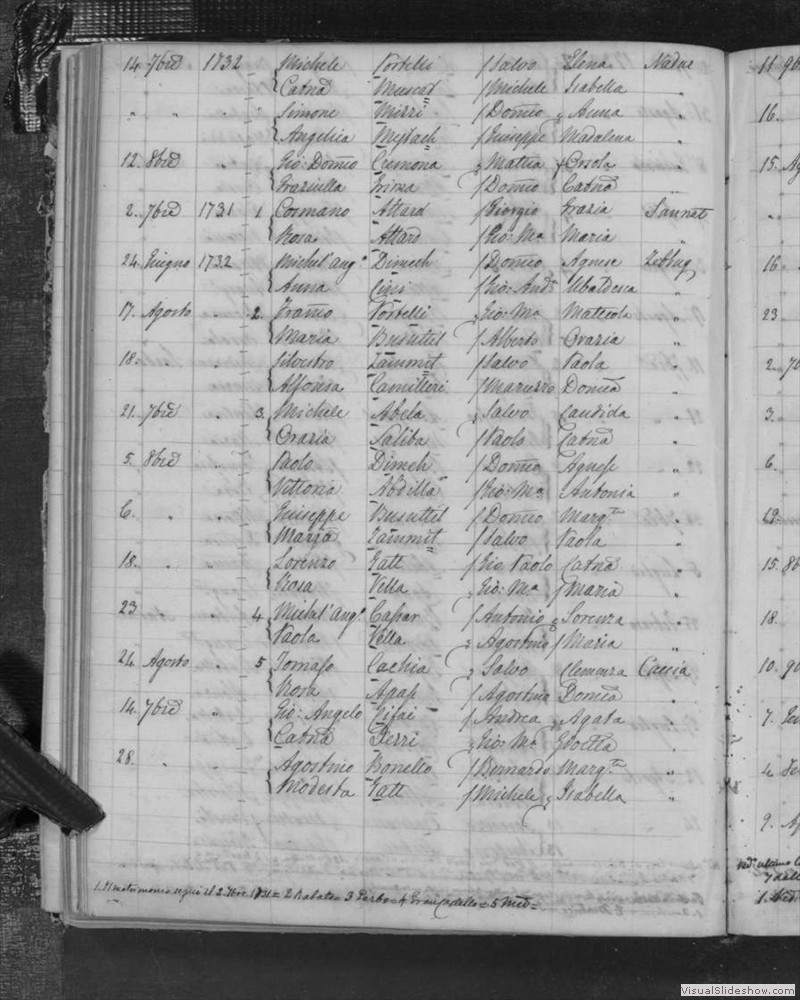 14 7bre 1732 Michele Portelli / Salvo Elena Nadur
Catnã Muscat / Michele Isabella "
" " " Simone Mizzi / Domco " Anna "
Angelica Meylach / Giuseppe Madalena "
12. 8bre " Gio: Domco Cremona " Mattia / Orsola "
Graziulla Grima / Domco Catnã "
2. 7bre 1731 1. Cosmano Attard / Giorgio Grazia Sannat
Rosa Attard / Gio: Ma Maria "
24 Giugno 1732 Michel'ang.o Dimech / Domco Agnese Zebbug
Anna / Gio: And.a Ubaldesca "
17. Agosto " 2. Portelli " Gio: Ma Matteola "
Maria Busuttil / Alberto Grazia "
18. " Silvestro Zammit / Salvo Paola "
Alfonsa Camilleri / Maruzzo Domca "
21. 7bre " 3. Michele Abela " Salvo Candida "
Grazia Saliba / Paolo Catnã "
5. 8bre " Paolo Dimech / Domco Agnese "
Vittoria Abdilla / Gio: Ma Antonia "
6. " " Giuseppe Busuttil / Domco Marg.ta "
Maria Zammit / Salvo Paola "
18. " Lorenzo Galt / Gio Paolo Catnã "
Rosa Vella " Gio: Ma / Maria "
23 " 4 Michel'Ang.o Caspar / Antonio " Lorenza "
Paola Vella " Agostino / Maria "
24 Agosto " 5 Tomaso Cachia " Salvo Clemenza Caccia
Rosa Agap / Agostino Domca "
14. 7bre " Gio: Angelo Zifai / Andrea " Agata "
Catnã Ferri " Gio: Ma "
28. " " Agostino Bonello / Bernardo Marg.ta "
Modesta Galt / Michele " Isabella "
1. Il matrimonio seguì il 2 7bre 1731 = 2 Rabato = 3 = 4 = 5
11 9b
16.
15. Ag
"
16 "
23
2. 7b
3.
6.
12.
15. 8b
18.
10. 9b
7.
4.
9. Ag
VisualSlideshow.com